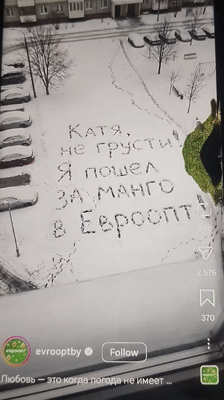 Катя,
не грусти!
Я пошел
за манго
в Евроопт!
2 576
370
evrooptby
Follow
Любовь — это когда погода не имеет ...